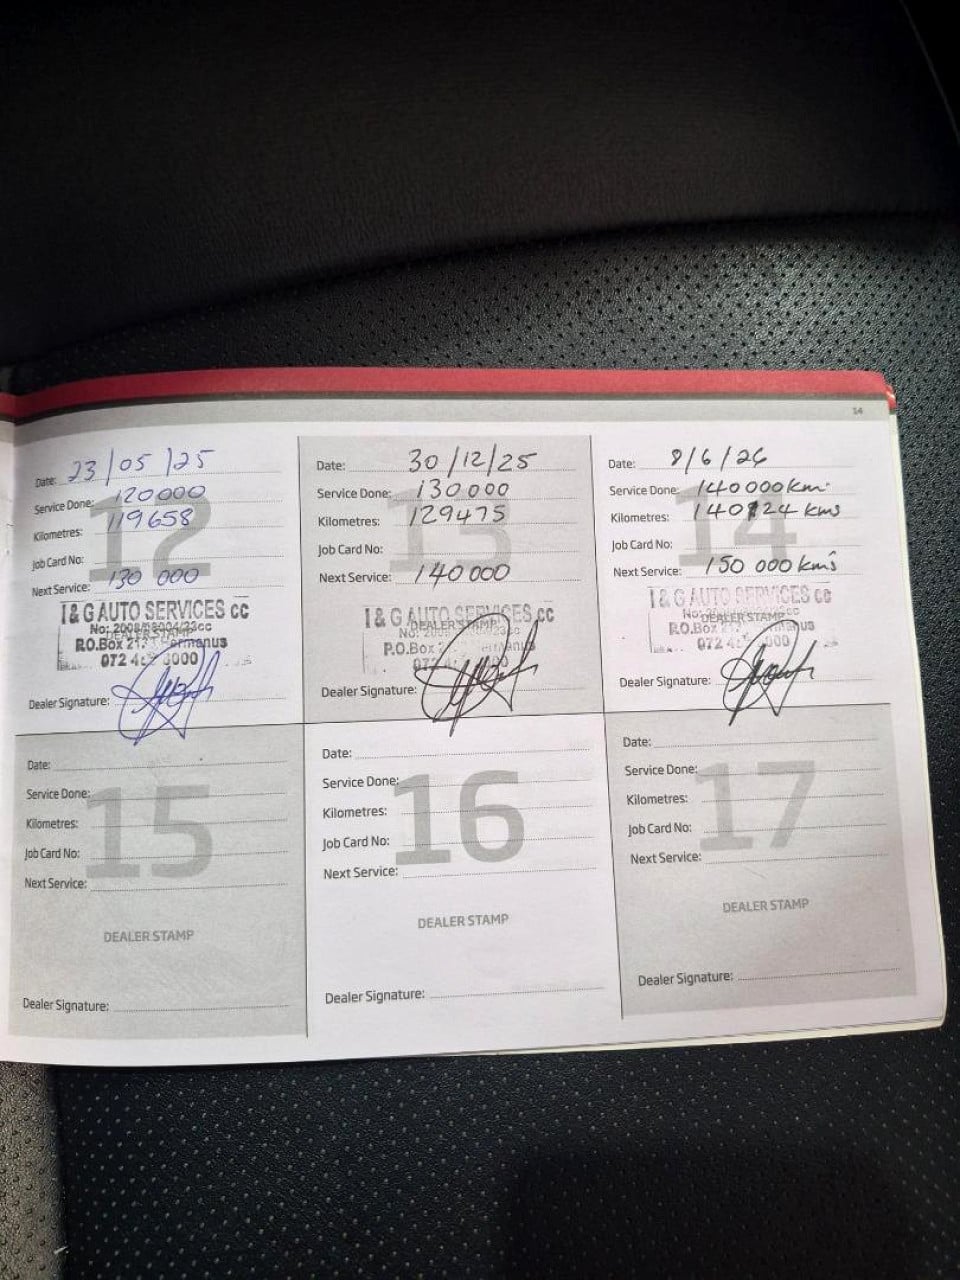 14
Date: 23/05/25
Service Done: 120000
Kilometres: 119658
Job Card No:
Next Service: 130 000
12
I & G AUTO SERVICES cc
DEALER STAMP
P.O.Box
072
Dealer Signature:
Date: 30/12/25
Service Done: 130000
Kilometres: 129475
Job Card No:
Next Service: 140000
13
I & G AUTO SERVICES cc
DEALER STAMP
P.O.Box
Dealer Signature:
Date: 8/6/26
Service Done: 140000km
Kilometres: 140124 kms
Job Card No:
Next Service: 150 000 kms
14
I & G AUTO SERVICES cc
DEALER STAMP
P.O.Box
072
Dealer Signature:
Date:
Service Done:
Kilometres:
Job Card No:
Next Service:
15
DEALER STAMP
Dealer Signature:
Date:
Service Done:
Kilometres:
Job Card No:
Next Service:
16
DEALER STAMP
Dealer Signature:
Date:
Service Done:
Kilometres:
Job Card No:
Next Service:
17
DEALER STAMP
Dealer Signature: